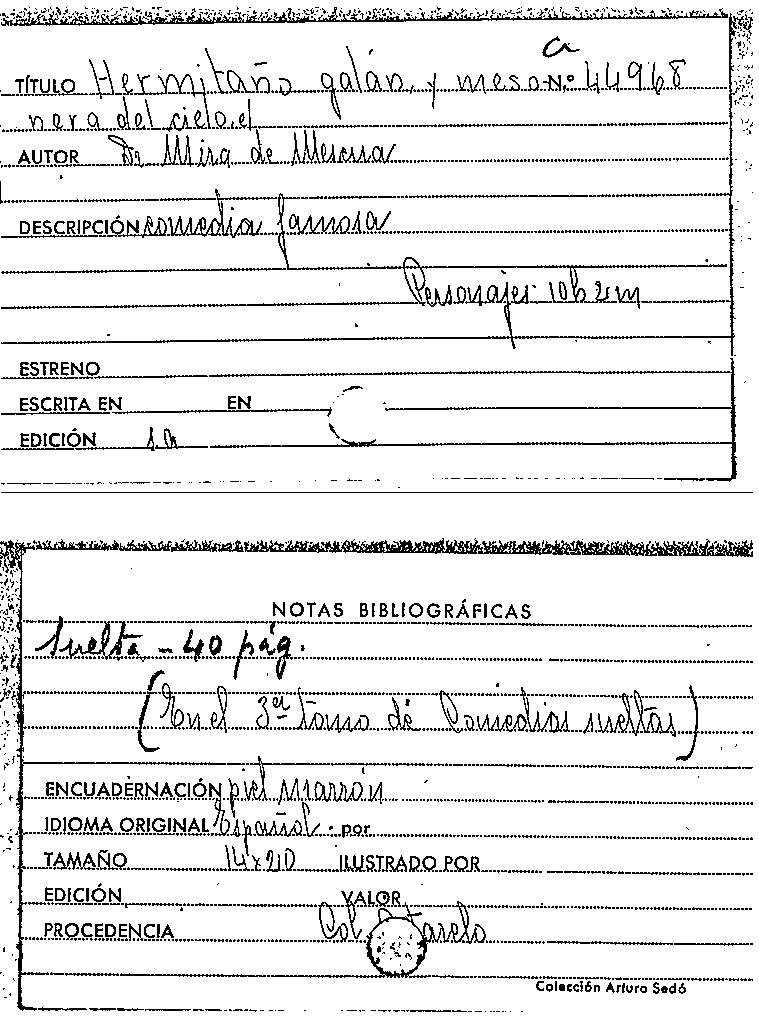 a
TÍTULO Hermitaño galán, y meso- N.º 44968
nera del cielo, el
AUTOR Dr Mira de Mescua
DESCRIPCIÓN comedia famosa
Personajes 10h 2m
ESTRENO
ESCRITA EN EN
EDICIÓN s.a
NOTAS BIBLIOGRÁFICAS
Suelta - 40 pág.
(En el 3er tomo de Comedias sueltas)
ENCUADERNACIÓN piel marrón
IDIOMA ORIGINAL Español - por
TAMAÑO 14x20 ILUSTRADO POR
EDICIÓN VALOR
PROCEDENCIA Col Cotarelo
Colección Arturo Sedó